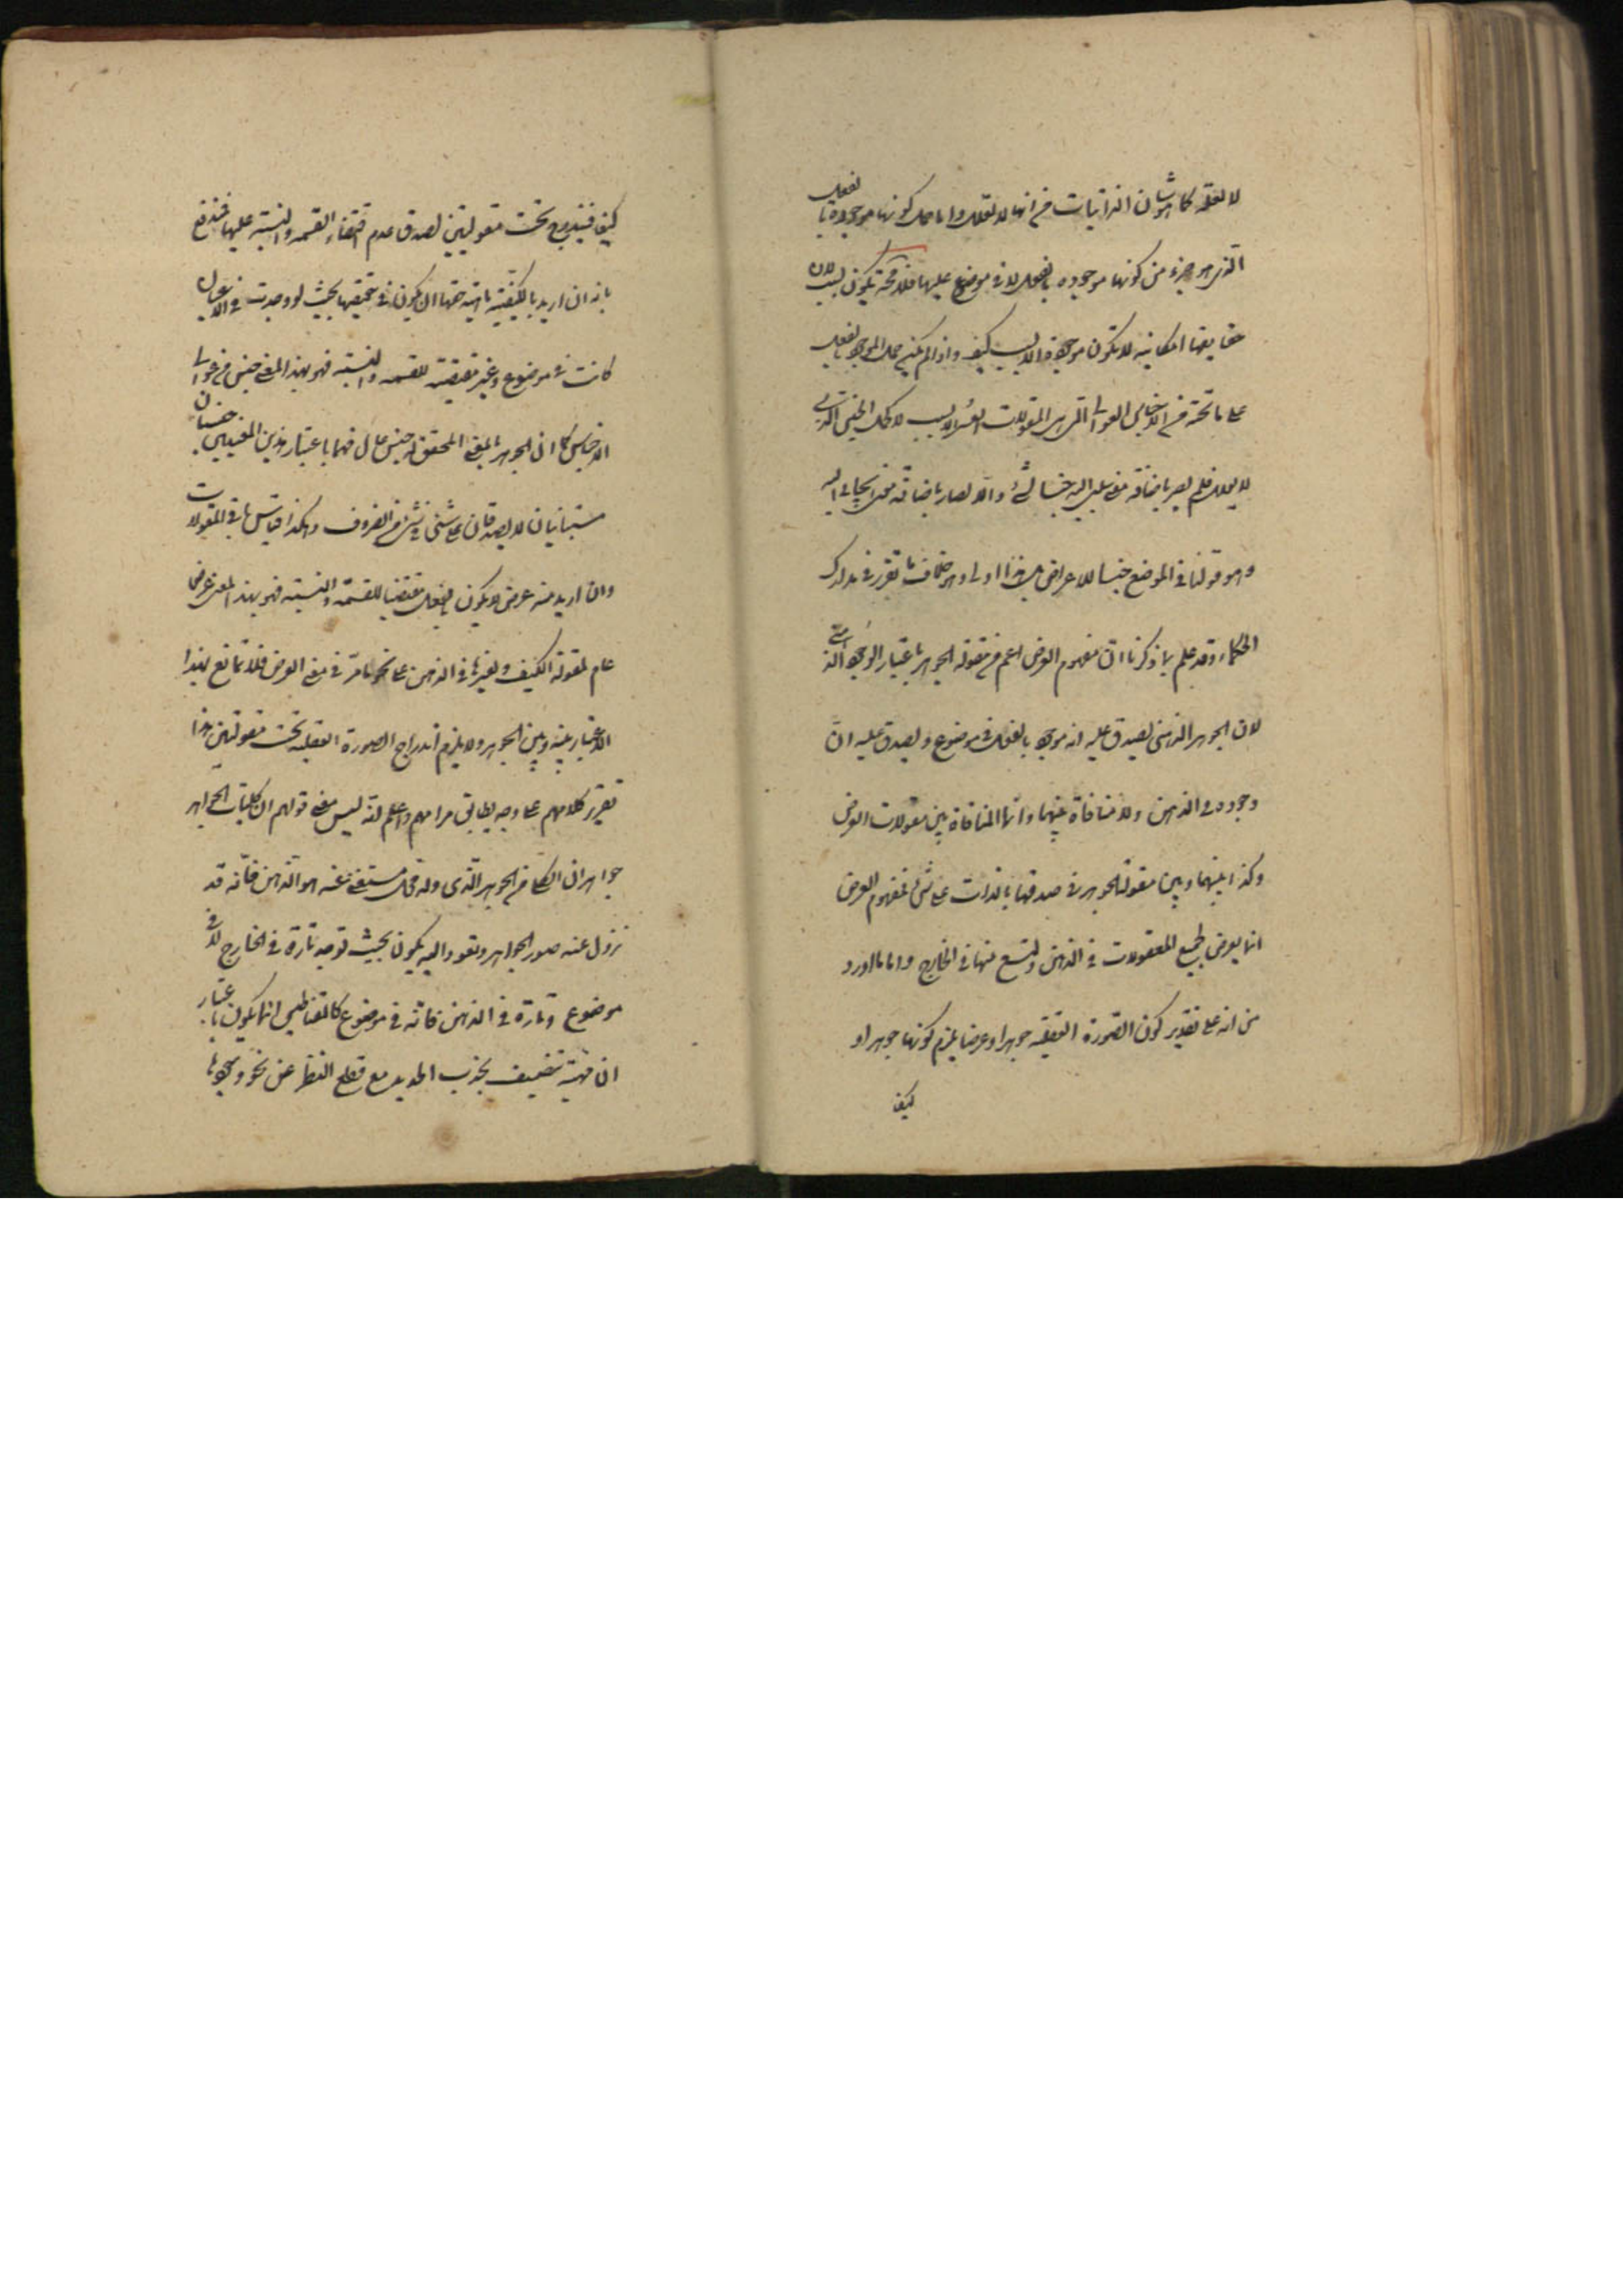 لا لعلة كما هو شان الذاتيات من انها لا تعلل واما حمل كونها موجودة بالفعل
الذي هو جزء من كونها موجودة بالفعل لا في موضوع عليها فلا محة يكون بسبب لان
حقايقها امكانية لا تكون موجودة الا بسبب كيف واذا لم يكن حمل الموجود بالفعل
على ما تحته من الاجناس العوالي التي هي المقولات العشر الا بسبب لا كحمل الجنس الذي
لا يعلل فلم يصر باضافة معنى سلبي اليه جنسا لشئ والا لصار باضافة معنى ايجابي اليه
وهو قولنا في الموضع جنسا للاعراض بل هذا اولى وهو خلاف ما تقرر في مدارك
الحكماء وقد علم بما ذكرنا ان مفهوم العرض اعم من مقولة الجوهر باعتبار الوجود الذهني
لان الجوهر الذهني يصدق عليه انه موجود بالفعل في موضوع ويصدق عليه ان
وجوده في الذهن ولا منافاة بينهما وانما المنافاة بين مقولات العرض
وكذا بينهما وبين مقولة الجوهر في صدقها بالذات على شئ لمفهوم العرض
انما يعرض لجميع المعقولات في الذهن ويمتنع منها في الخارج واما ما اورد
من انه على تقدير كون الصورة العقلية جوهرا وعرضا يلزم كونها جوهرا و
كيف
كيف فيندرج تحت مقولتين لصدق عدم اقتضاء القسمة والنسبة عليها فمندفع
بانه ان اريد بالكيفية ماهية حقها ان يكون في تحققها بحيث لو وجدت في الاعيان
كانت في موضوع وغير مقتضية للقسمة والنسبة فهو بهذا المعنى جنس من عوالي
الاجناس كما ان الجوهر بالمعنى المحقق له جنس عال فهما باعتبار هذين المعنيين جنسان
متباينان لا يصدقان على شئ في شئ من الظروف وهكذا قياس باقي المقولات
وان اريد منه عرض لا يكون بالفعل مقتضيا للقسمة والنسبة فهو بهذا المعنى عرض
عام لمقولة الكيف ولغيرها في الذهن على نحو ما مر في معنى العرض فلا تمانع بهذا
الاعتبار بينه وبين الجوهر ولا يلزم اندراج الصورة العقلية تحت مقولتين هذا
تقرير كلامهم على وجه يطابق مرامهم واعلم انه ليس معنى قولهم ان كليات الجواهر
جواهر ان الكلي من الجوهر الذي وله محل مستغن عنه هو الذهن فانه قد
تزول عنه صور الجواهر وتعود اليه يكون بحيث توجد تارة في الخارج لا في
موضوع وتارة في الذهن فانه في موضوع كالمقناطيس انما يكون باعتبار
ان مهية تتصف بجذب الحديد مع قطع النظر عن نحو وجودها